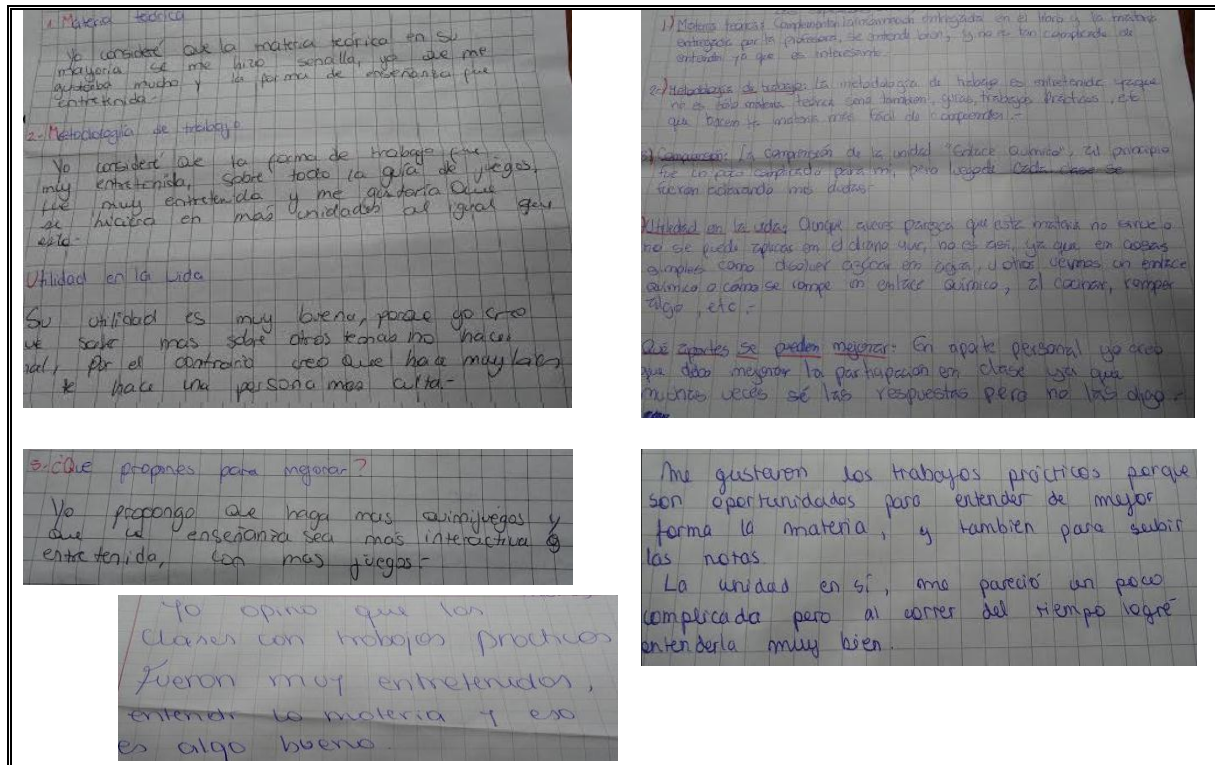 1. Materia teórica
Yo consideré que la materia teórica en su
mayoría se me hizo sencilla, ya que me
gustaba mucho y la forma de enseñanba fue
entretenida.-
2.- Metodología de trabajo
Yo consideré que la forma de trabajo fue
muy entretenida, sobre todo la guía de juegos,
fue muy entretenida y me gustaría que
se hiciera en más unidades al igual que
esta.-
Utilidad en la vida
Su utilidad es muy buena, porque yo creo
saber mas sobre otros temas no hace
mal, por el contrario creo que hace muy bien,
te hace una persona mas culta.-
3.- ¿Que propones para mejorar?
Yo propongo que haga mas quimijuegos y
que la enseñanza sea más interactiva y
entretenida, con mas juegos.-
Yo opino que las
clases con trabajos practicos
fueron muy entretenidos,
entendi la materia y eso
es algo bueno.
1.) Materia teórica: Complementa la información entregada en el libro y la materia
entregada por la profesora, se entiende bien, y no es tan complicada de
entender ya que es interesante.
2.-) Metodología de trabajo: La metodología de trabajo es entretenida ya que
no es sólo materia teórica sino también, guías, trabajos prácticos, etc
que hacen la materia más fácil de comprender.-
3) Comprensión: La comprensión de la unidad "Enlace Químico", al principio
fue un poco complicada para mí, pero luego de cada clase se
fueron aclarando mis dudas.-
Utilidad en la vida: Aunque aveces parezca que esta materia no sirve o
no se puede aplicar en el diario vivir, no es así, ya que en cosas
simples como disolver azúcar en agua, u otros vemos un enlace
químico o cómo se rompe un enlace químico, al cocinar, romper
algo, etc.-
Qué aportes se pueden mejorar: En aporte personal yo creo
que debo mejorar la participación en clase ya que
muchas veces sé las respuestas pero no las digo.-
Me gustaron los trabajos prácticos porque
son oportunidades para entender de mejor
forma la materia, y tambien para subir
las notas.
La unidad en sí, me pareció un poco
complicada pero al correr del tiempo logré
entenderla muy bien.